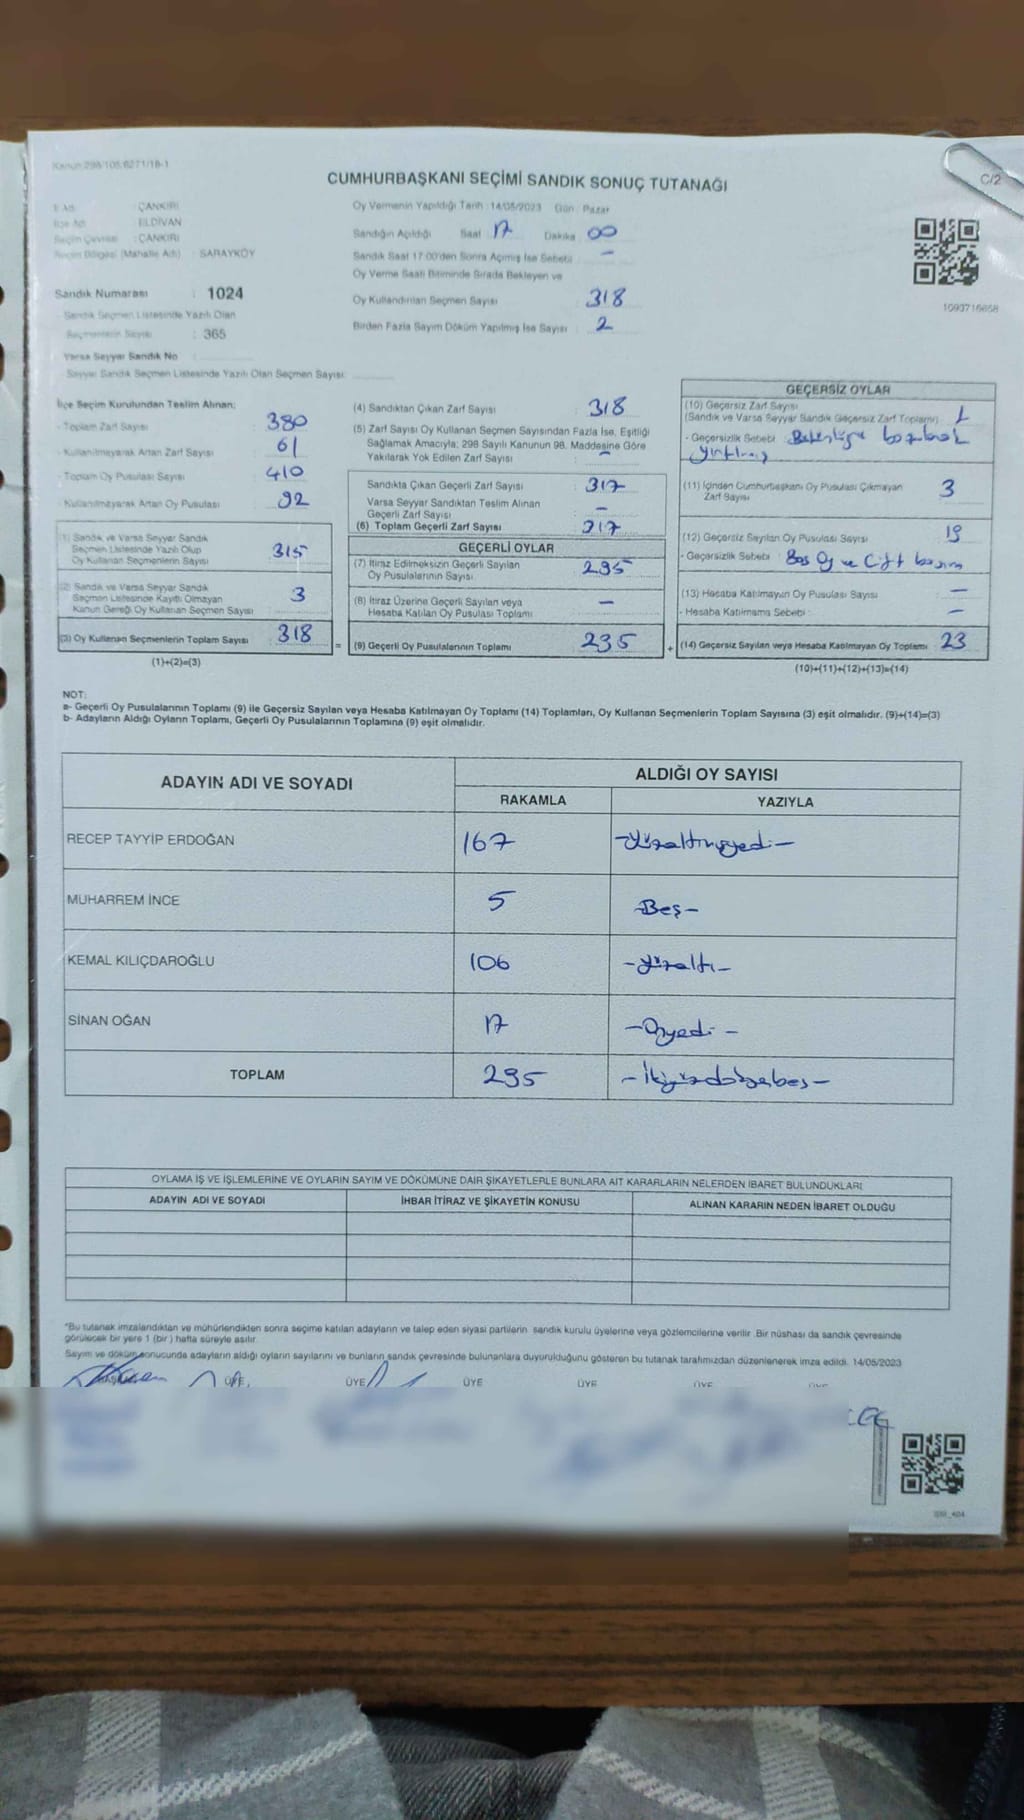 Kanun:298/105,6271/18-1
C/2
CUMHURBAŞKANI SEÇİMİ SANDIK SONUÇ TUTANAĞI
İl Adı : ÇANKIRI
İlçe Adı : ELDİVAN
Seçim Çevresi : ÇANKIRI
Seçim Bölgesi (Mahalle Adı) : SARAYKÖY
Sandık Numarası : 1024
- Sandık Seçmen Listesinde Yazılı Olan
Seçmenlerin Sayısı : 365
Varsa Seyyar Sandık No
- Seyyar Sandık Seçmen Listesinde Yazılı Olan Seçmen Sayısı:
Oy Vermenin Yapıldığı Tarih : 14/05/2023 Gün : Pazar
Sandığın Açıldığı Saat 17 Dakika 00
Sandık Saat 17.00'den Sonra Açılmış İse Sebebi : -
Oy Verme Saati Bitiminde Sırada Bekleyen ve
Oy Kullandırılan Seçmen Sayısı 318
Birden Fazla Sayım Döküm Yapılmış İse Sayısı : 2
1093716658
İlçe Seçim Kurulundan Teslim Alınan:
- Toplam Zarf Sayısı 380
- Kullanılmayarak Artan Zarf Sayısı 61
- Toplam Oy Pusulası Sayısı 410
- Kullanılmayarak Artan Oy Pusulası 92
(1) Sandık ve Varsa Seyyar Sandık
Seçmen Listesinde Yazılı Olup
Oy Kullanan Seçmenlerin Sayısı 315
(2) Sandık ve Varsa Seyyar Sandık
Seçmen Listesinde Kayıtlı Olmayan
Kanun Gereği Oy Kullanan Seçmen Sayısı 3
(3) Oy Kullanan Seçmenlerin Toplam Sayısı 318 =
(1)+(2)=(3)
(4) Sandıktan Çıkan Zarf Sayısı : 318
(5) Zarf Sayısı Oy Kullanan Seçmen Sayısından Fazla İse, Eşitliği
Sağlamak Amacıyla; 298 Sayılı Kanunun 98. Maddesine Göre
Yakılarak Yok Edilen Zarf Sayısı : -
Sandıkta Çıkan Geçerli Zarf Sayısı : 317
Varsa Seyyar Sandıktan Teslim Alınan
Geçerli Zarf Sayısı : -
(6) Toplam Geçerli Zarf Sayısı : 317
GEÇERLİ OYLAR
(7) İtiraz Edilmeksizin Geçerli Sayılan
Oy Pusulalarının Sayısı : 295
(8) İtiraz Üzerine Geçerli Sayılan veya
Hesaba Katılan Oy Pusulası Toplamı : -
(9) Geçerli Oy Pusulalarının Toplamı : 295 +
GEÇERSİZ OYLAR
(10) Geçersiz Zarf Sayısı
(Sandık ve Varsa Seyyar Sandık Geçersiz Zarf Toplamı) : 1
- Geçersizlik Sebebi : bozularak
yırtılmış
(11) İçinden Cumhurbaşkanı Oy Pusulası Çıkmayan
Zarf Sayısı 3
(12) Geçersiz Sayılan Oy Pusulası Sayısı 19
- Geçersizlik Sebebi : Boş Oy ve Çift basım
(13) Hesaba Katılmayan Oy Pusulası Sayısı : -
- Hesaba Katılmama Sebebi : -
(14) Geçersiz Sayılan veya Hesaba Katılmayan Oy Toplamı : 23
(10)+(11)+(12)+(13)=(14)
NOT:
a- Geçerli Oy Pusulalarının Toplamı (9) ile Geçersiz Sayılan veya Hesaba Katılmayan Oy Toplamı (14) Toplamları, Oy Kullanan Seçmenlerin Toplam Sayısına (3) eşit olmalıdır. (9)+(14)=(3)
b- Adayların Aldığı Oyların Toplamı, Geçerli Oy Pusulalarının Toplamına (9) eşit olmalıdır.
ADAYIN ADI VE SOYADI ALDIĞI OY SAYISI
RAKAMLA YAZIYLA
RECEP TAYYİP ERDOĞAN 167 -Yüzaltmışyedi-
MUHARREM İNCE 5 -Beş-
KEMAL KILIÇDAROĞLU 106 -Yüzaltı-
SİNAN OĞAN 17 -Onyedi-
TOPLAM 295 -İkiyüzdoksanbeş-
OYLAMA İŞ VE İŞLEMLERİNE VE OYLARIN SAYIM VE DÖKÜMÜNE DAİR ŞİKAYETLERLE BUNLARA AİT KARARLARIN NELERDEN İBARET BULUNDUKLARI
ADAYIN ADI VE SOYADI İHBAR İTİRAZ VE ŞİKAYETİN KONUSU ALINAN KARARIN NEDEN İBARET OLDUĞU
*Bu tutanak imzalandıktan ve mühürlendikten sonra seçime katılan adayların ve talep eden siyasi partilerin sandık kurulu üyelerine veya gözlemcilerine verilir .Bir nüshası da sandık çevresinde
görülecek bir yere 1 (bir ) hafta süreyle asılır.
Sayım ve döküm sonucunda adayların aldığı oyların sayılarını ve bunların sandık çevresinde bulunanlara duyurulduğunu gösteren bu tutanak tarafımızdan düzenlenerek imza edildi. 14/05/2023
ÜYE ÜYE ÜYE ÜYE ÜYE ÜYE